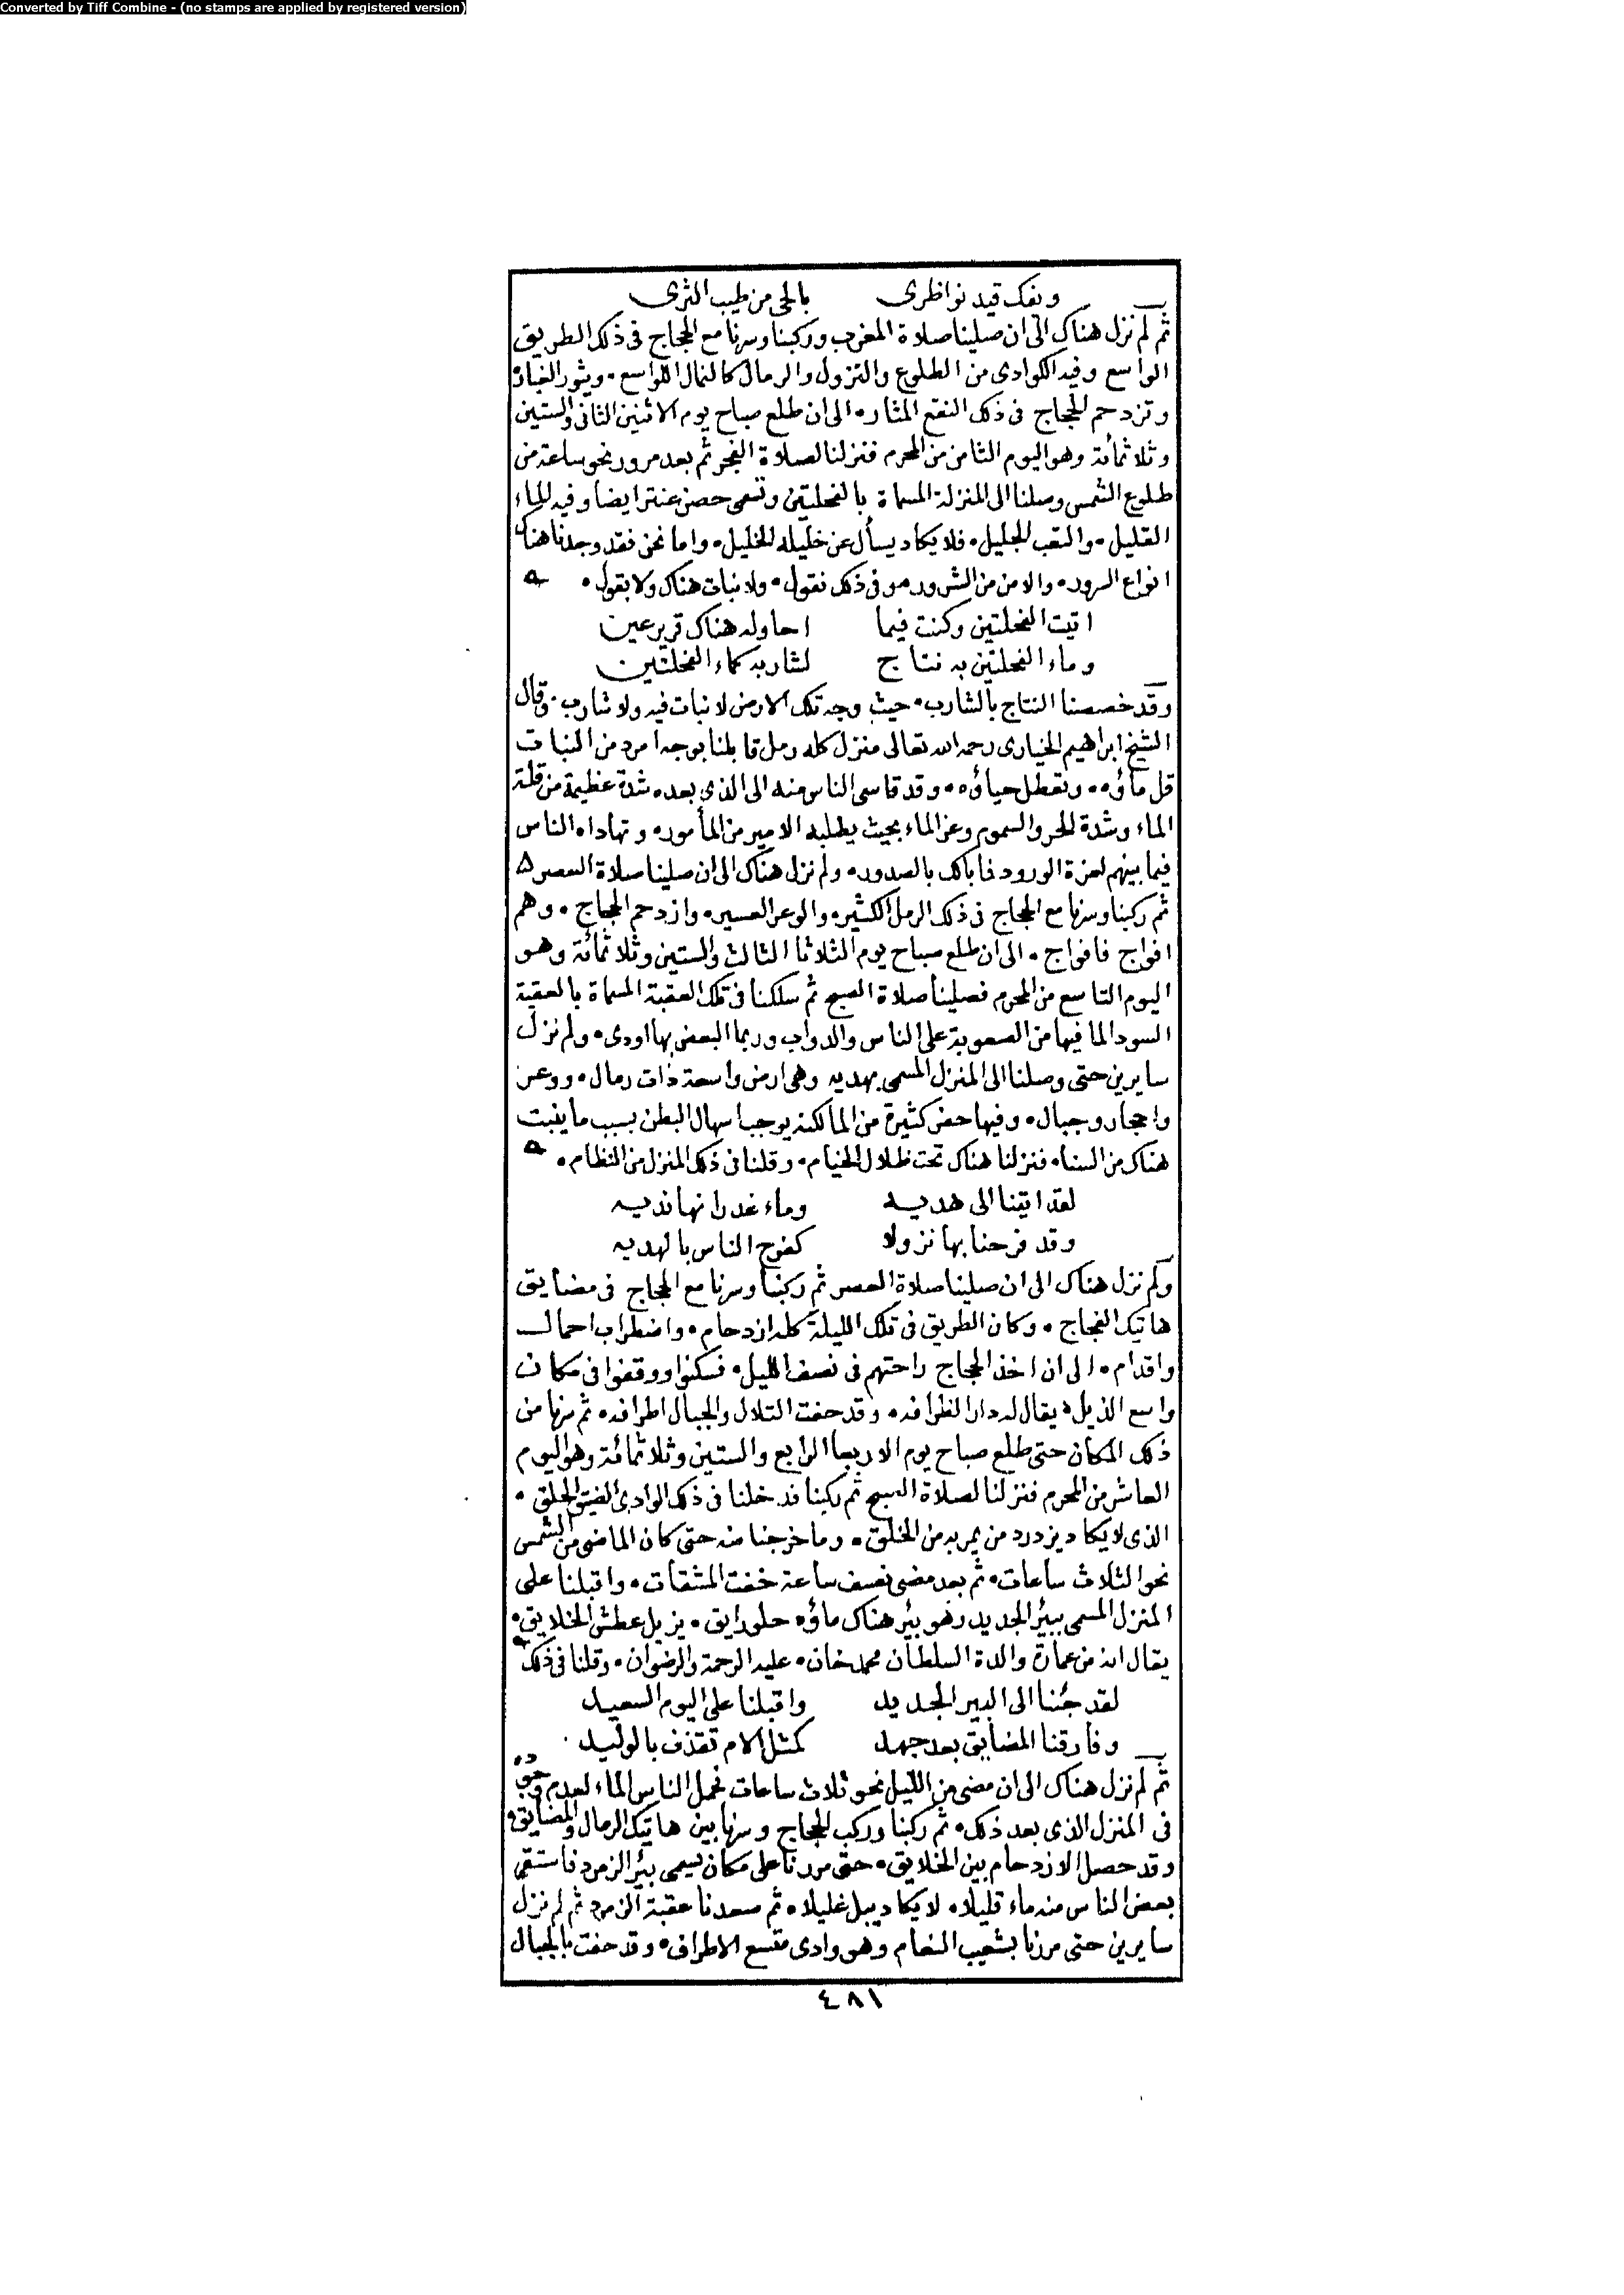 Converted by Tiff Combine - (no stamps are applied by registered version)
ونفك قيد نواظرى بالحى من طيب الثرى
ثم لم نزل هناك الى ان صلينا صلاة المغرب وركبنا وسرنا مع الحجاج فى ذلك الطريق
الواسع وفيه الكوادى من الطلوع والنزول والرمال كالنمال اللواسع • ويثور الغبار
وتزدحم الحجاج فى ذلك النقع المثار • الى ان طلع صباح يوم الاثنين الثانى والستين
وثلاثمائة وهو اليوم الثامن من المحرم فنزلنا لصلاة الفجر ثم بعد مرور نحو ساعة من
طلوع الشمس وصلنا الى المنزلة المسماة بالفحلتين وتسمى حصن عنتر ايضا وفيه الماء
القليل • والتعب الجليل • فلا يكاد يسأل عن خليله الخليل • واما نحن فقد وجدنا هناك
انواع السرور • والامن من الشرور • وفى ذلك نقول • ولا نبات هناك ولا بقول •
اتيت الفحلتين وكنت فيما احاوله هناك قرير عين
وماء الفحلتين به نتاج لشاربه كماء الفحلتين
وقد خصصنا النتاج بالشارب • حيث وجه تلك الارض لا نبات فيه ولا شارب • وقال
الشيخ ابراهيم الخيارى رحمه الله تعالى منزل كله رمل قابلنا بوجه امرد من النبات
قل ماؤه • وتعطل حياؤه • وقد قاسى الناس منه الى الذى بعده شدة عظيمة من قلة
الماء وشدة الحر والسموم وعز الماء بحيث يطلبه الامير من المأمور • وتهاداه الناس
فيما بينهم لعزة الورود فما بالك بالصدور • ولم نزل هناك الى ان صلينا صلاة العصر
ثم ركبنا وسرنا مع الحجاج فى ذلك الرمل الكثير • والوعر العسير • وازدحم الحجاج • وهم
افواج فافواج • الى ان طلع صباح يوم الثلاثا الثالث والستين وثلاثمائة وهو
اليوم التاسع من المحرم فصلينا صلاة الصبح ثم سلكنا فى تلك العقبة المسماة بالعقبة
السودا لما فيها من الصعوبة على الناس والدواب وربما البعض بها اودى • ولم نزل
سايرين حتى وصلنا الى المنزل المسمى بهديه وهى ارض واسعة ذات رمال • ووعر
واحجار وجبال • وفيها حفر كثيرة من الماء لكنه يوجب اسهال البطن بسبب ما ينبت
هناك من السنا • فنزلنا هناك تحت ظلال الخيام • وقلنا فى ذلك المنزل من النظام •
لقد اتينا الى هديه وماء غدرانها نديه
وقد فرحنا بها نزولا كفرح الناس بالهديه
ولم نزل هناك الى ان صلينا صلاة العصر ثم ركبنا وسرنا مع الحجاج فى مضايق
هاتيك الفجاج • وكان الطريق فى تلك الليلة كله ازدحام • واضطراب احمال
واقدام • الى ان اخذ الحجاج راحتهم فى نصف الليل • فسكنوا ووقفوا فى مكان
واسع الذيل • يقال له دار الظرافه • وقد حفت التلال والجبال اطرافه • ثم سرنا من
ذلك المكان حتى طلع صباح يوم الاربعا الرابع والستين وثلاثمائة وهو اليوم
العاشر من المحرم فنزلنا لصلاة الصبح ثم ركبنا فدخلنا فى ذلك الوادى الضيق الحلق •
الذى لا يكاد يزدرد من يمر به من الخلق • وما خرجنا منه حتى كان الماضى من الشمس
نحو الثلاث ساعات • ثم بعد مضى نصف ساعة خفت المشقات • واقبلنا على
المنزل المسمى ببئر الجديد وهو بئر هناك ماؤه حلو رايق • يزيل عطش الخلايق •
يقال انه من عمارة والدة السلطان محمد خان • عليه الرحمة والرضوان • وقلنا فى ذلك
لقد جئنا الى البير الجديد واقبلنا على اليوم السعيد
وفارقنا المضايق بعد جهد كمثل الام تقذف بالوليد
ثم لم نزل هناك الى ان مضى من الليل نحو ثلاث ساعات فحمل الناس الماء لعدم وجوده
فى المنزل الذى بعد ذلك • ثم ركبنا وركب الحجاج وسرنا بين هاتيك الرمال والمضايق •
وقد حصل الازدحام بين الخلايق • حتى مررنا على مكان يسمى بئر الزمرد فاستقى
بعض الناس منه ماء قليلا • لا يكاد يبل غليلا • ثم صعدنا عقبة الزمرد ثم لم نزل
سايرين حتى مررنا بشعيب النعام وهو وادى متسع الاطراف • وقد حفت بالجبال
٤٨١